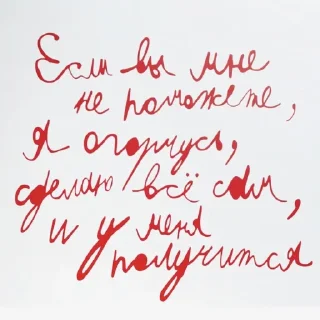 Если вы мне
не поможете,
я огорчусь,
сделаю всё сам,
и у меня
получится